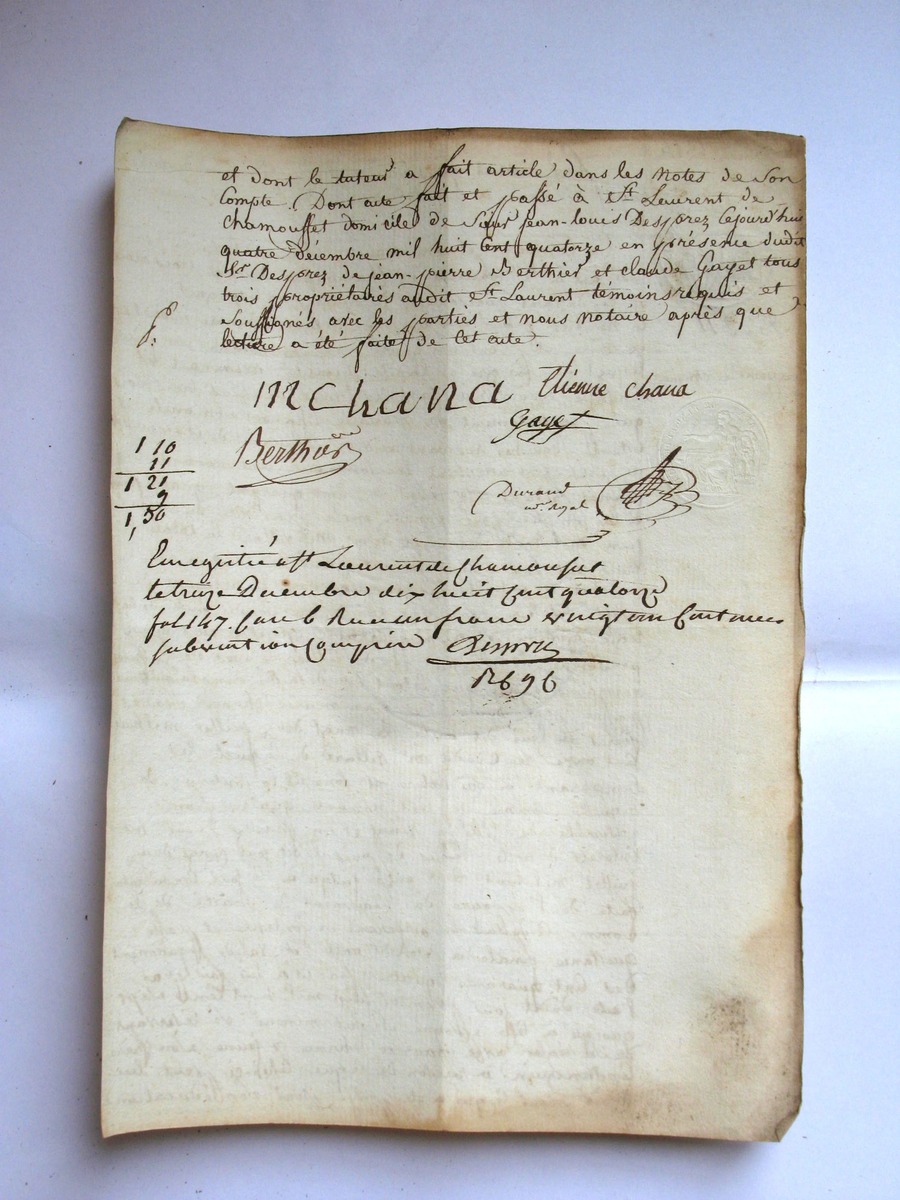 et dont le tuteur a fait article dans les notes de Son
Compte. Dont acte fait et passé à St. Laurent de
Chamousset domicile de Sieur jean-louis Desprez Cejourd'hui
quatre décembre mil huit Cent quatorze en présence dudit
Sr. Desprez de jean-pierre Berthier et claude Gayet tous
trois propriétaires audit St. Laurent témoins requis et
Soussignés avec les parties et nous notaire après que
lecture a été faite de Cet acte.
mchana Etienne Chana
Gayet
Berthier
1 10
11
1 21
9
1,30
Durand
nre. Royal
Enregistré à St Laurent de Chamousset
le treize Decembre dix huit Cent quatorze
fol 147. Case 6 Reçu un franc vingt un Centimes
subvention Comprise
R 696